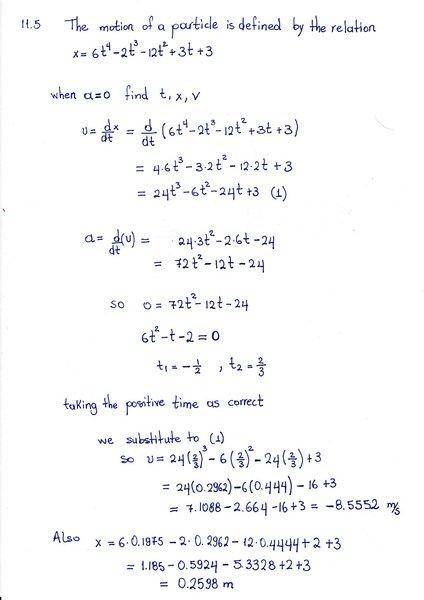 11.5 The motion of a particle is defined by the relation
x = 6t⁴-2t³-12t²+3t+3
when a=0 find t, x, v
v = d/dt x = d/dt (6t⁴-2t³-12t²+3t+3)
= 4·6t³-3·2t²-12·2t+3
= 24t³-6t²-24t+3 (1)
a = d/dt (v) = 24·3t²-2·6t-24
= 72t²-12t-24
so 0 = 72t²-12t-24
6t²-t-2=0
t₁=-1/2 , t₂=2/3
taking the positive time as correct
we substitute to (1)
so v=24(2/3)³-6(2/3)²-24(2/3)+3
= 24(0.2962)-6(0.444)-16+3
= 7.1088-2.664-16+3 = -8.5552 m/s
Also x = 6·0.1975-2·0.2962-12·0.4444+2+3
= 1.185-0.5924-5.3328+2+3
= 0.2598 m